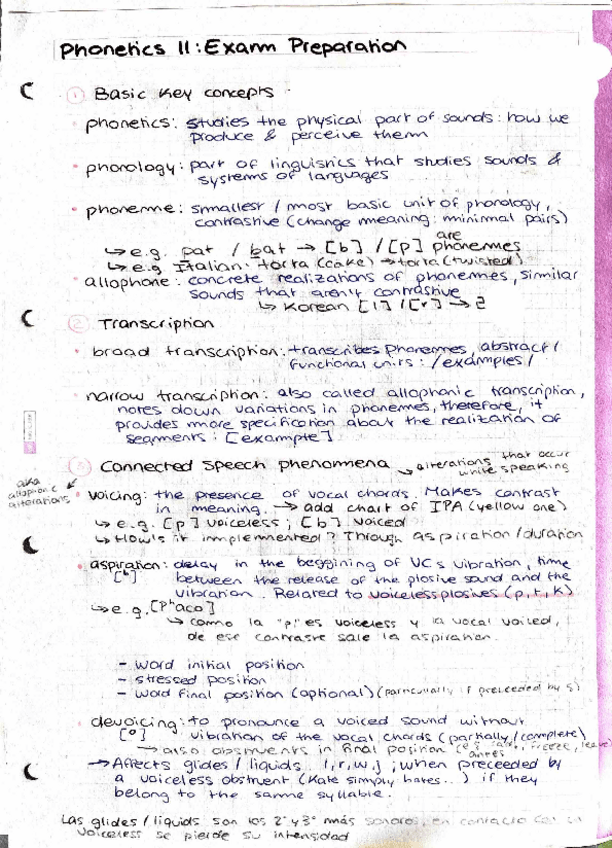 Phonetics II: Exam Preparation
① Basic key concepts
• phonetics: studies the physical part of sounds: how we
produce & perceive them
• phonology: part of linguistics that studies sounds &
systems of languages
• phoneme: smallest / most basic unit of phonology,
contrastive (change meaning: minimal pairs)
↳ e.g. pat / bat → [b] / [p] are phonemes
↳ e.g Italian: torta (cake) → torta (twisted)
• allophone: concrete realizations of phonemes, similar
sounds that aren't contrastive
↳ Korean [l] / [r] → 2
② Transcription
• broad transcription: transcribes phonemes, abstract /
functional units: /examples/
• narrow transcription: also called allophonic transcription,
notes down variations in phonemes, therefore, it
provides more specification about the realization of
segments: [example]
③ Connected speech phenomena → alterations that occur
while speaking
aka
allophonic
alterations
• voicing: the presence of vocal chords. Makes contrast
in meaning. → add chart of IPA (yellow one)
↳ e.g. [p] voiceless; [b] voiced
↳ How is it implemented? Through aspiration/duration
• aspiration: delay in the beggining of VCs vibration, time
[ʰ] between the release of the plosive sound and the
vibration. Related to voiceless plosives (p, t, k)
↳ e.g. [Pʰaco]
↳ como la "p" es voiceless y la vocal voiced,
de ese contraste sale la aspiración.
- word initial position
- stressed position
- word final position (optional) (particularly if preceeded by s)
• devoicing: to pronounce a voiced sound without
[̥] vibration of the vocal chords (partially/complete)
→ also obstruents in final position (e.g. freeze, leave)
→ Affects glides / liquids l, r, w, j; when preceeded by
a voiceless obstruent (Kate simply hates...) if they
belong to the same syllable.
Las glides / liquids son los 2º y 3º más sonoros, en contacto con
voiceless se pierde su intensidad